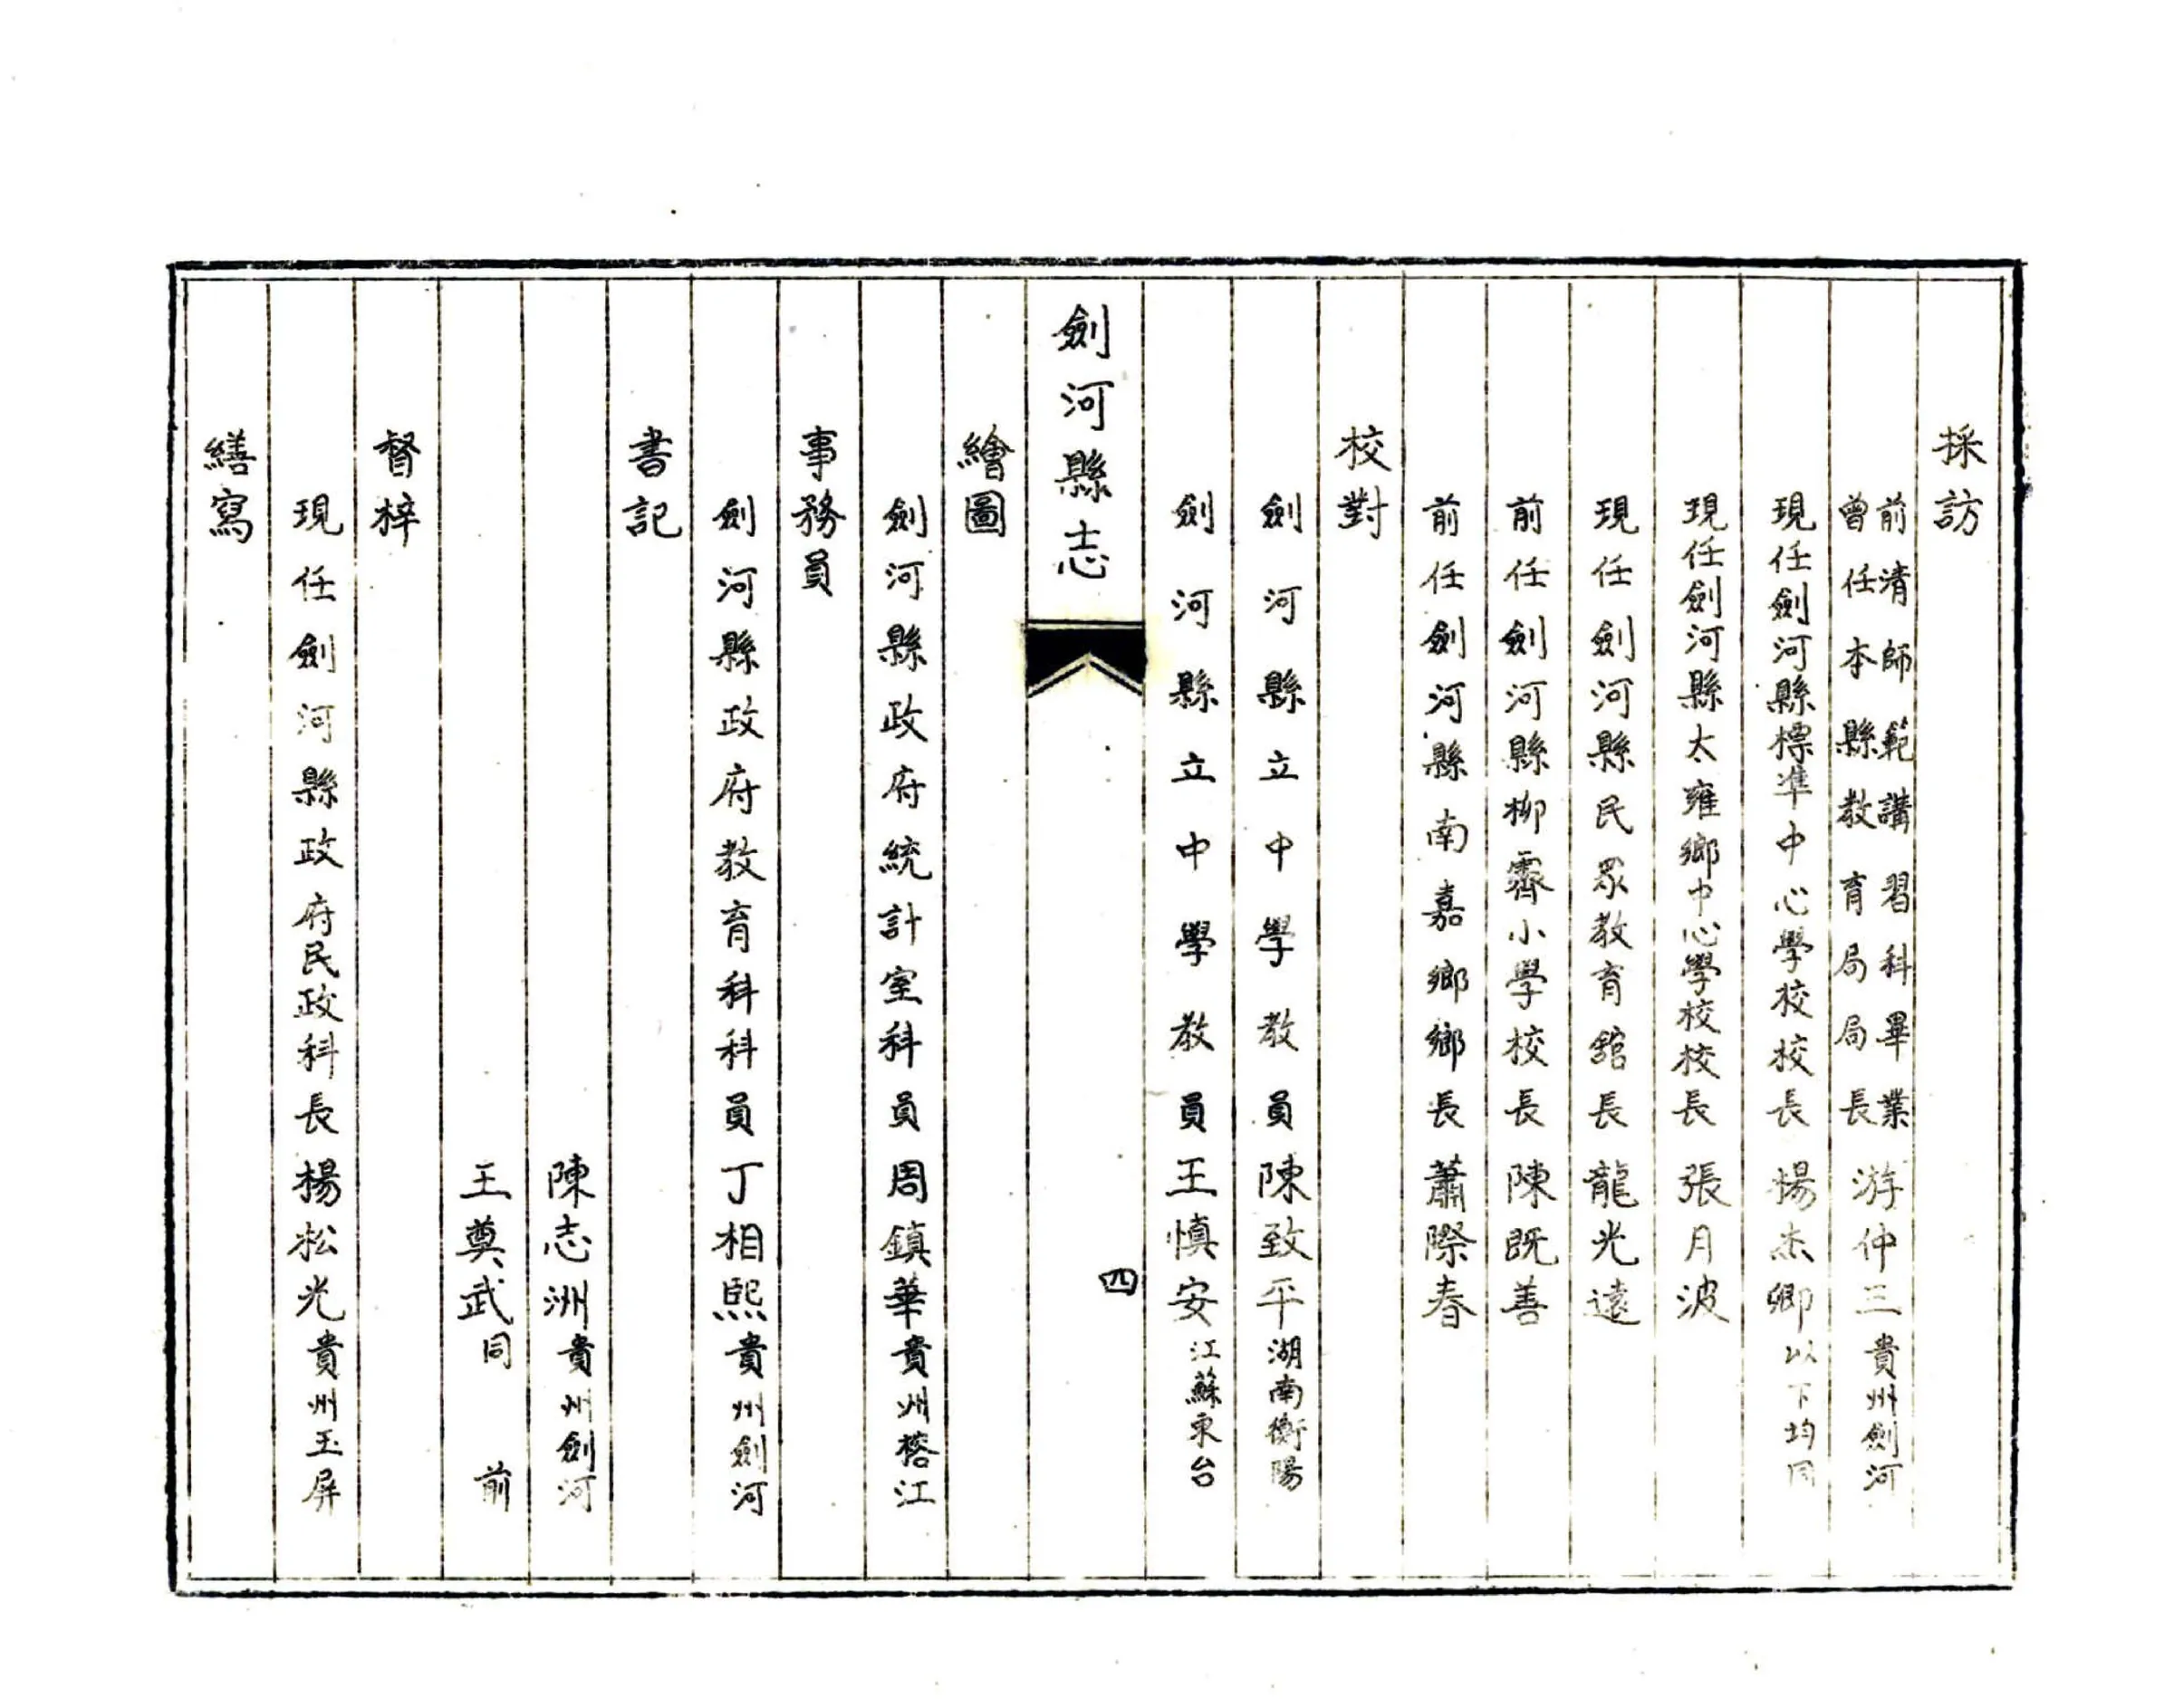 採訪
前清師範講習科畢業
曾任本縣教育局局長 游仲三 貴州劍河
現任劍河縣標準中心學校校長 楊杰卿 以下均同
現任劍河縣太雍鄉中心學校校長 張月波
現任劍河縣民眾教育館長 龍光遠
前任劍河縣柳霽小學校長 陳既善
前任劍河縣南嘉鄉鄉長 蕭際春
校對
劍河縣立中學教員 陳致平 湖南衡陽
劍河縣立中學教員 王慎安 江蘇東台
劍河縣志
四
繪圖
劍河縣政府統計室科員 周鎮華 貴州榕江
事務員
劍河縣政府教育科科員 丁相熙 貴州劍河
書記
陳志洲 貴州劍河
王奠武 同前
督梓
現任劍河縣政府民政科長 楊松光 貴州玉屏
繕寫